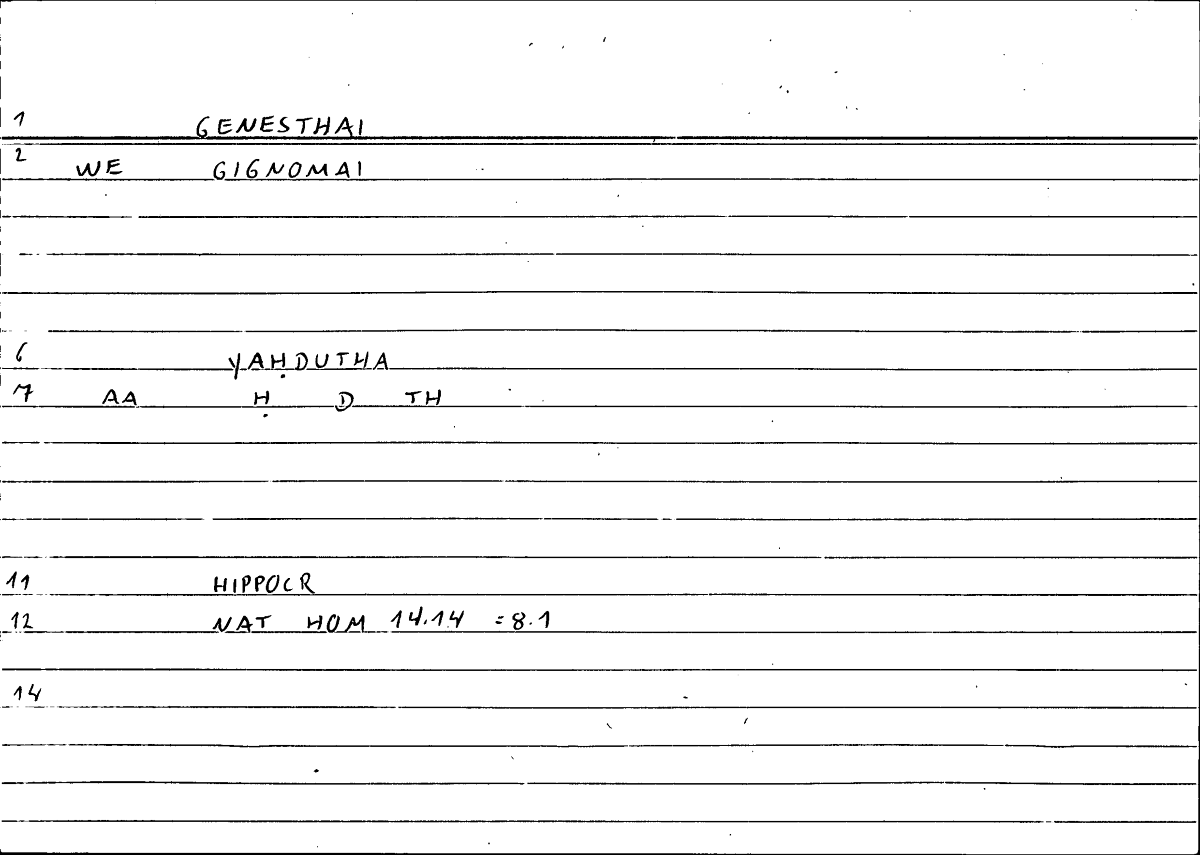 1 GENESTHAI
2 WE GIGNOMAI
6 YAḤDUTHA
7 AA Ḥ D TH
11 HIPPOCR
12 NAT HOM 14.14 = 8.1
14